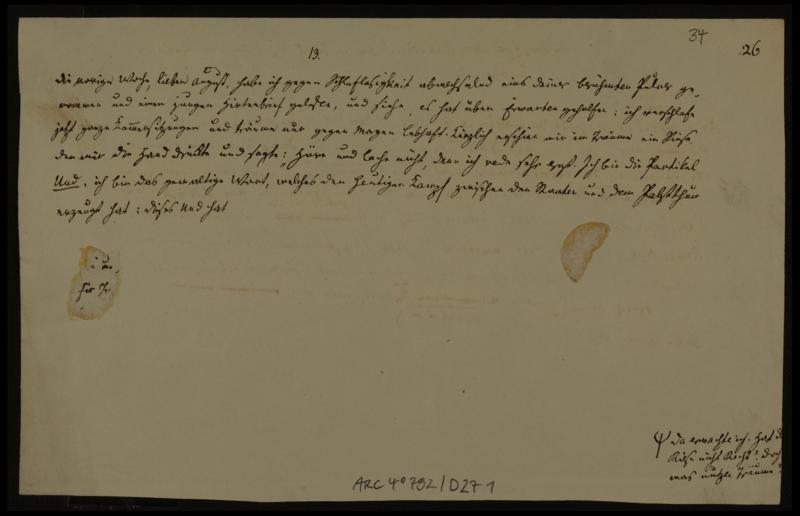 34
26
13.
Die vorige Woche, lieber August, habe ich gegen Schlaflosigkeit abwechselnd eins deiner berühmten Pulver ge-
nommen und einen zungen Hirtenbrief gelesen, und siehe, es hat über Erwarten geholfen: ich verschlafe
jetzt ganze Kammersitzungen und träume nur gegen Morgen lebhaft. Kürzlich erschien mir im Traume ein Riese,
der mir die Hand drückte und sagte: Höre und lache nicht, denn ich rede sehr ernst. Ich bin die Partikel
Und, ich bin das gewaltige Wort, welches den heutigen Kampf zwischen den Staaten und dem Pabstthum
erzeugt hat: dieses Und hat
Da erwachte ich. Hat d
Riese nicht Recht? Doch
was nützen Träume?
ARC 4° 792/D27 1